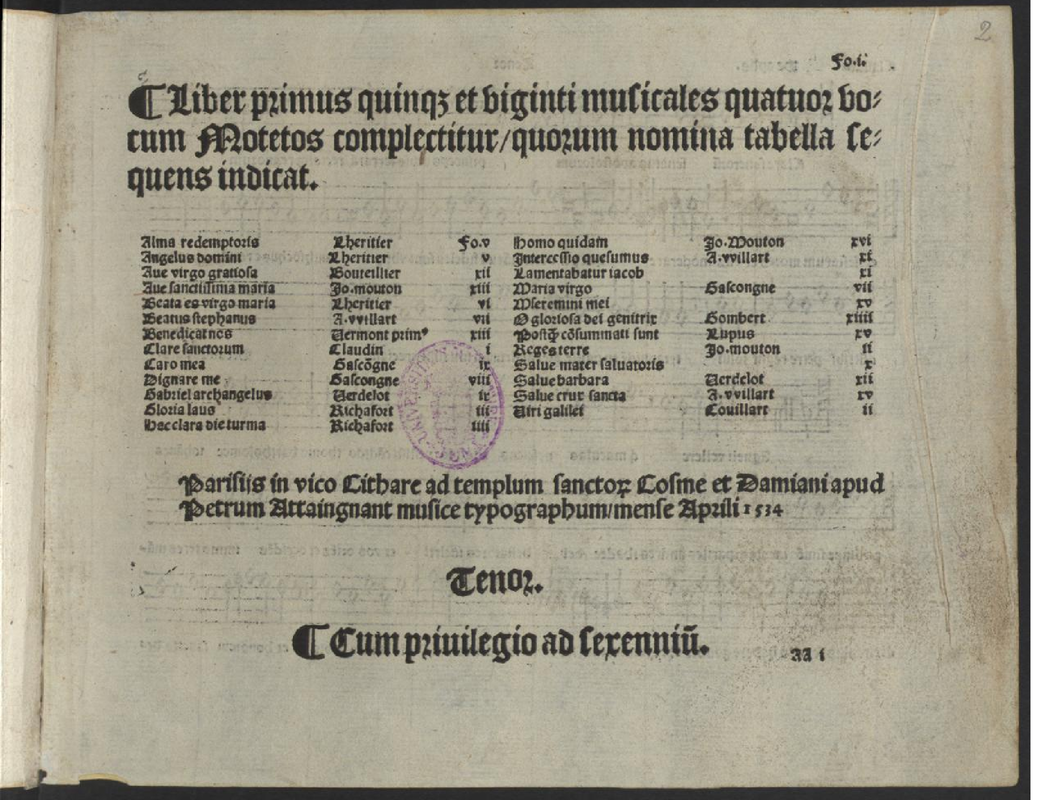 2
Fo.i.
¶ Liber primus quinqꝫ et viginti musicales quatuor vo⸗
cum Motetos complectitur/quorum nomina tabella se⸗
quens indicat.
Alma redemptoris Lheritier Fo.v
Angelus domini Lheritier v
Aue virgo gratiosa Bouteillier xii
Aue sanctissima maria Jo.mouton xiii
Beata es virgo maria Lheritier vi
Beatus stephanus A.vvillart vii
Benedicat nos Vermont primꝰ xiii
Clare sanctorum Claudin i
Caro mea Gascõgne ix
Dignare me Gascongne viii
Gabriel archangelus Verdelot ix
Gloria laus Richafort iii
Hec clara die turma Richafort iiii
Homo quidam Jo.Mouton xvi
Intercessio quesumus A.vvillart xi
Lamentabatur iacob xi
Maria virgo Gascongne vii
Miseremini mei xv
O gloriosa dei genitrix Gombert xiiii
Postq̃ cõsummati sunt Lupus xv
Reges terre Jo.mouton ii
Salue mater saluatoris x
Salue barbara Verdelot xii
Salue crux sancta A.vvillart xv
Viri galilei Couillart ii
Parisijs in vico Cithare ad templum sanctoꝝ Cosme et Damiani apud
Petrum Attaingnant musice typographum/mense Aprili 1534
Tenor.
¶ Cum priuilegio ad sexenniũ.
aa i